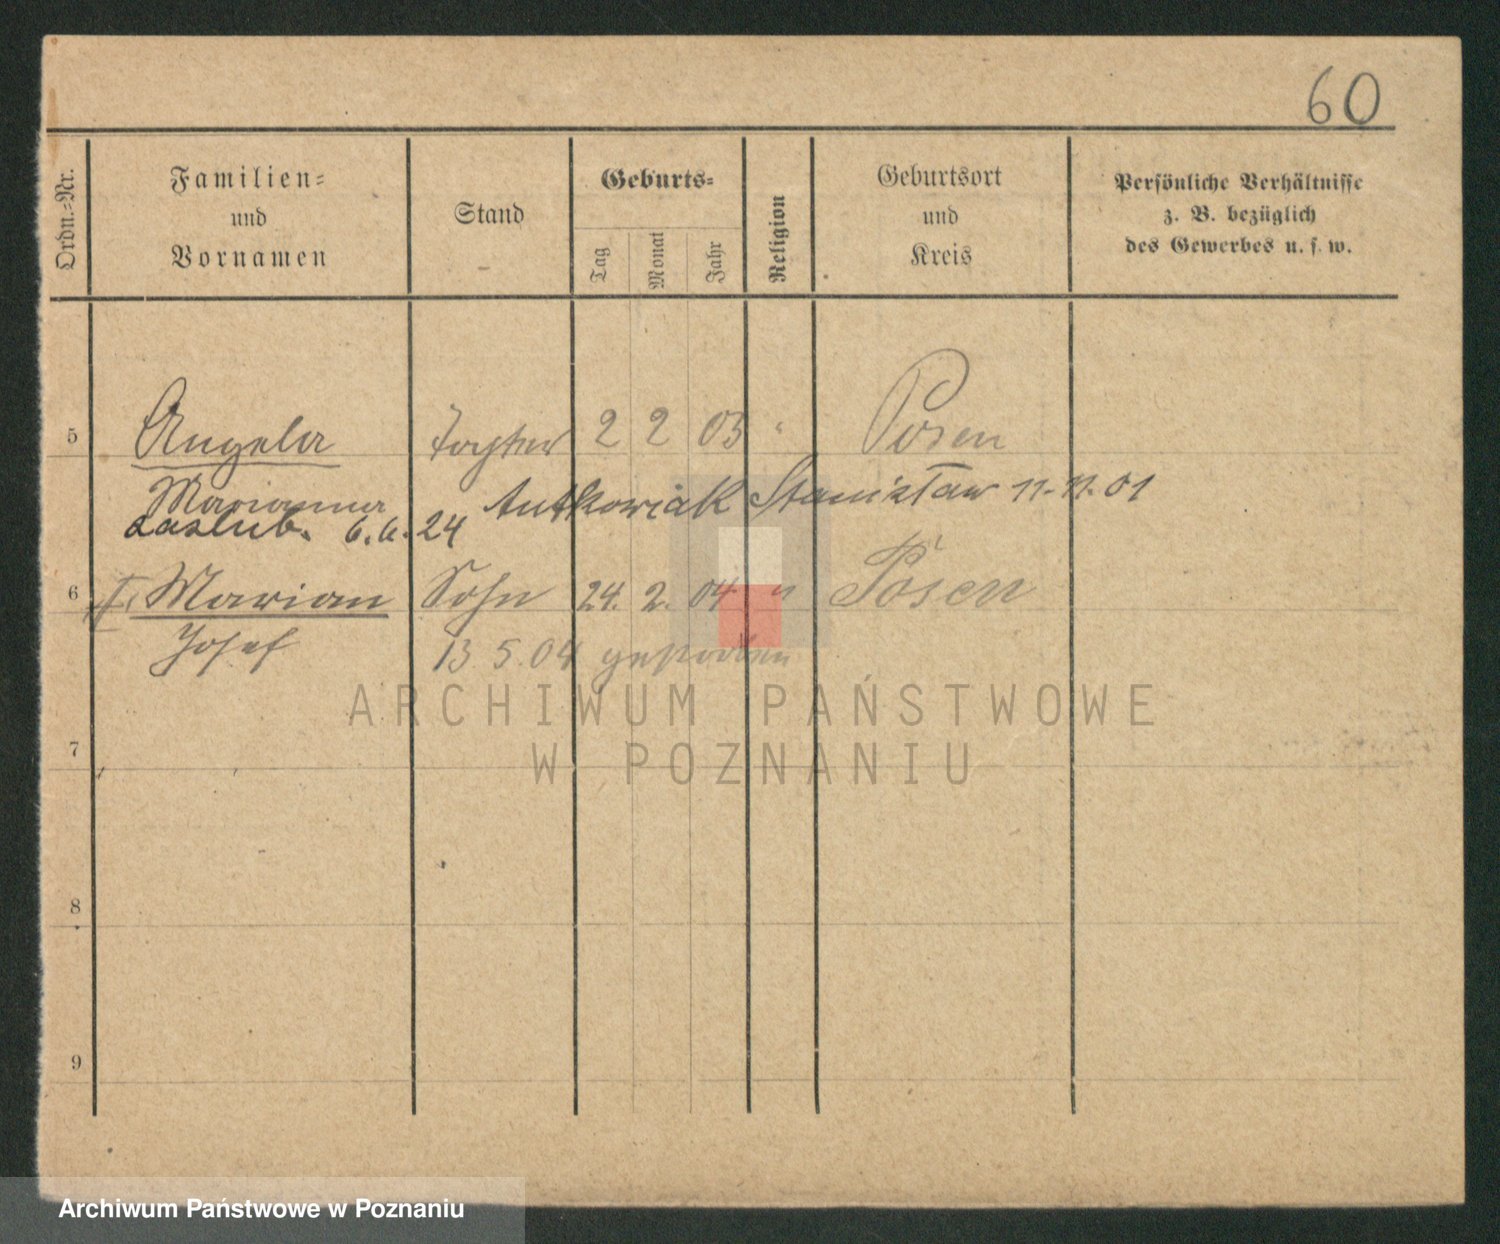 60
Ordn.-Nr.
Familien-
und
Vornamen
Stand
Geburts-
Tag
Monat
Jahr
Religion
Geburtsort
und
Kreis
Persönliche Verhältnisse
z. B. bezüglich
des Gewerbes u. s. w.
5 Angela Tochter 2 2 03 " Posen
Marianna Antkowiak Stanisław 11. 11. 01
zaślub. 6. 6. 24
6 Marian Sohn 24. 2. 04 " Posen
Josef 13 5. 04 gestorben
7
8
9
ARCHIWUM PAŃSTWOWE
W POZNANIU
Archiwum Państwowe w Poznaniu